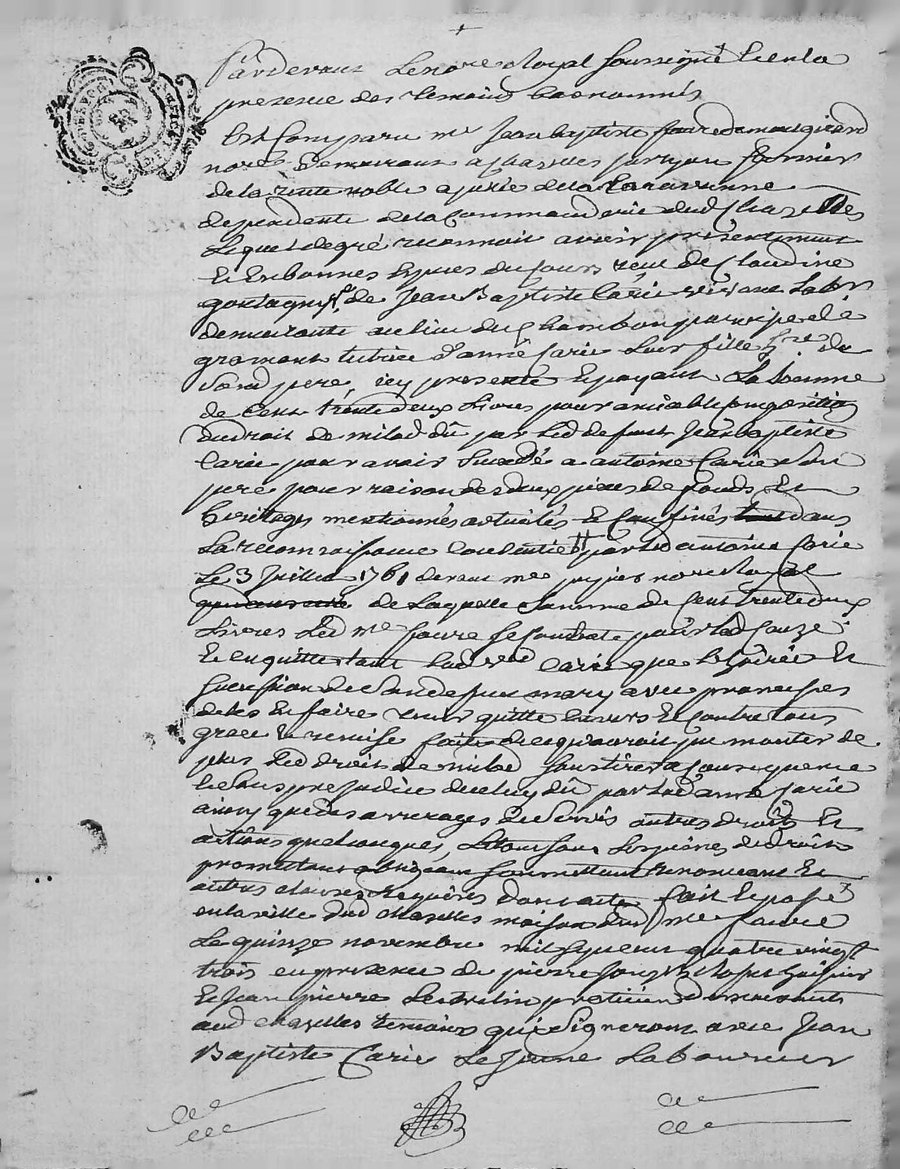 Pardevant Le nore Royal soussigné et en la
presence des temoins bas nommés
Est Comparu me Jean baptiste faure de montgirand
nore demeurant a chazelles fermier
de la rente noble de la
dependente de la Commanderie dud Chazelles
Lequel de gré reconnoit avoir presentement
et en bonnes especes du cours reçu de Claudine
de Jean Baptiste Carie vivant Labr
demeurante au lieu du Chambon paroisse de
gramont tutrice d'anne Carie leur fille hre de
Sond pere, icy presente et payant La Somme
de Cent trente deux Livres pour amiable composition
du droit de milod dû par led deffunt Jean baptiste
Carie pour avoir Succédé a antoine Carie Son
pere pour raison des deux pieces de fonds et
heritages mentionnés et Confinés dans
La reconnoissance par led antoine Carie
Le 3 Juillet 1761 devant me nore Royal
de Laquelle Somme de Cent trente deux
Livres Led me faure Se Contente pour lad Cauze
et en quitte tant lad Carie que L'hoirie et
Succession de Son deffunt mary avec promesses
de les en faire tenir quitte envers et contre tous
grace et remise faite de ce que auroit pu monter de
plus Led droit de milod Sans tirer a Consequence
et Sans prejudice de celuy dû par lad anne Carie
ainsy que des arrerages de Servis autres droits et
actions quelconques,
promettant obligeant Soumettant Renonceant et
autres clauses Requises dont acte fait et passé
en la ville dud chazelles maison dud me faure
Le quinze novembre mil Sept cent quatre vingt
trois en presence de pierre
et Jean pierre praticien demeurants
aud chazelles temoins qui Signeront avec Jean
Baptiste Carie Le Jeune Laboureur